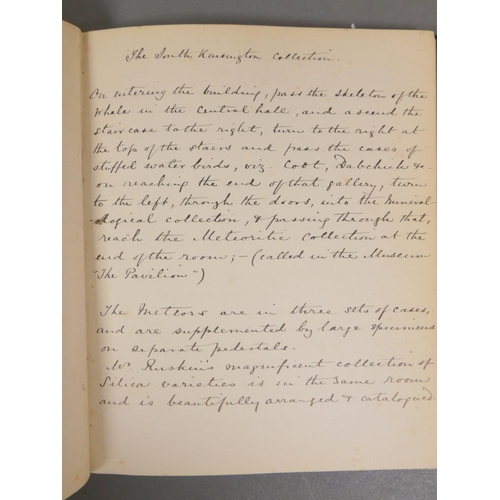 The South Kensington Collection.
On entering the building, pass the skeleton of the
Whale in the Central hall, and ascend the
staircase to the right, turn to the right at
the top of the stairs and pass the cases of
stuffed water birds, viz. Coot, Dabchick &c
on reaching the end of that gallery, turn
to the left, through the doors, into the Mineral-
-ological collection, & passing through that,
reach the Meteoritic Collection at the
end of the room; - (called in the Museum
"The Pavilion")
The Meteors are in three sets of cases,
and are supplemented by large specimens
on separate pedestals.
Mr. Ruskin's magnificent collection of
Silica varieties is in the same room
and is beautifully arranged & catalogued.